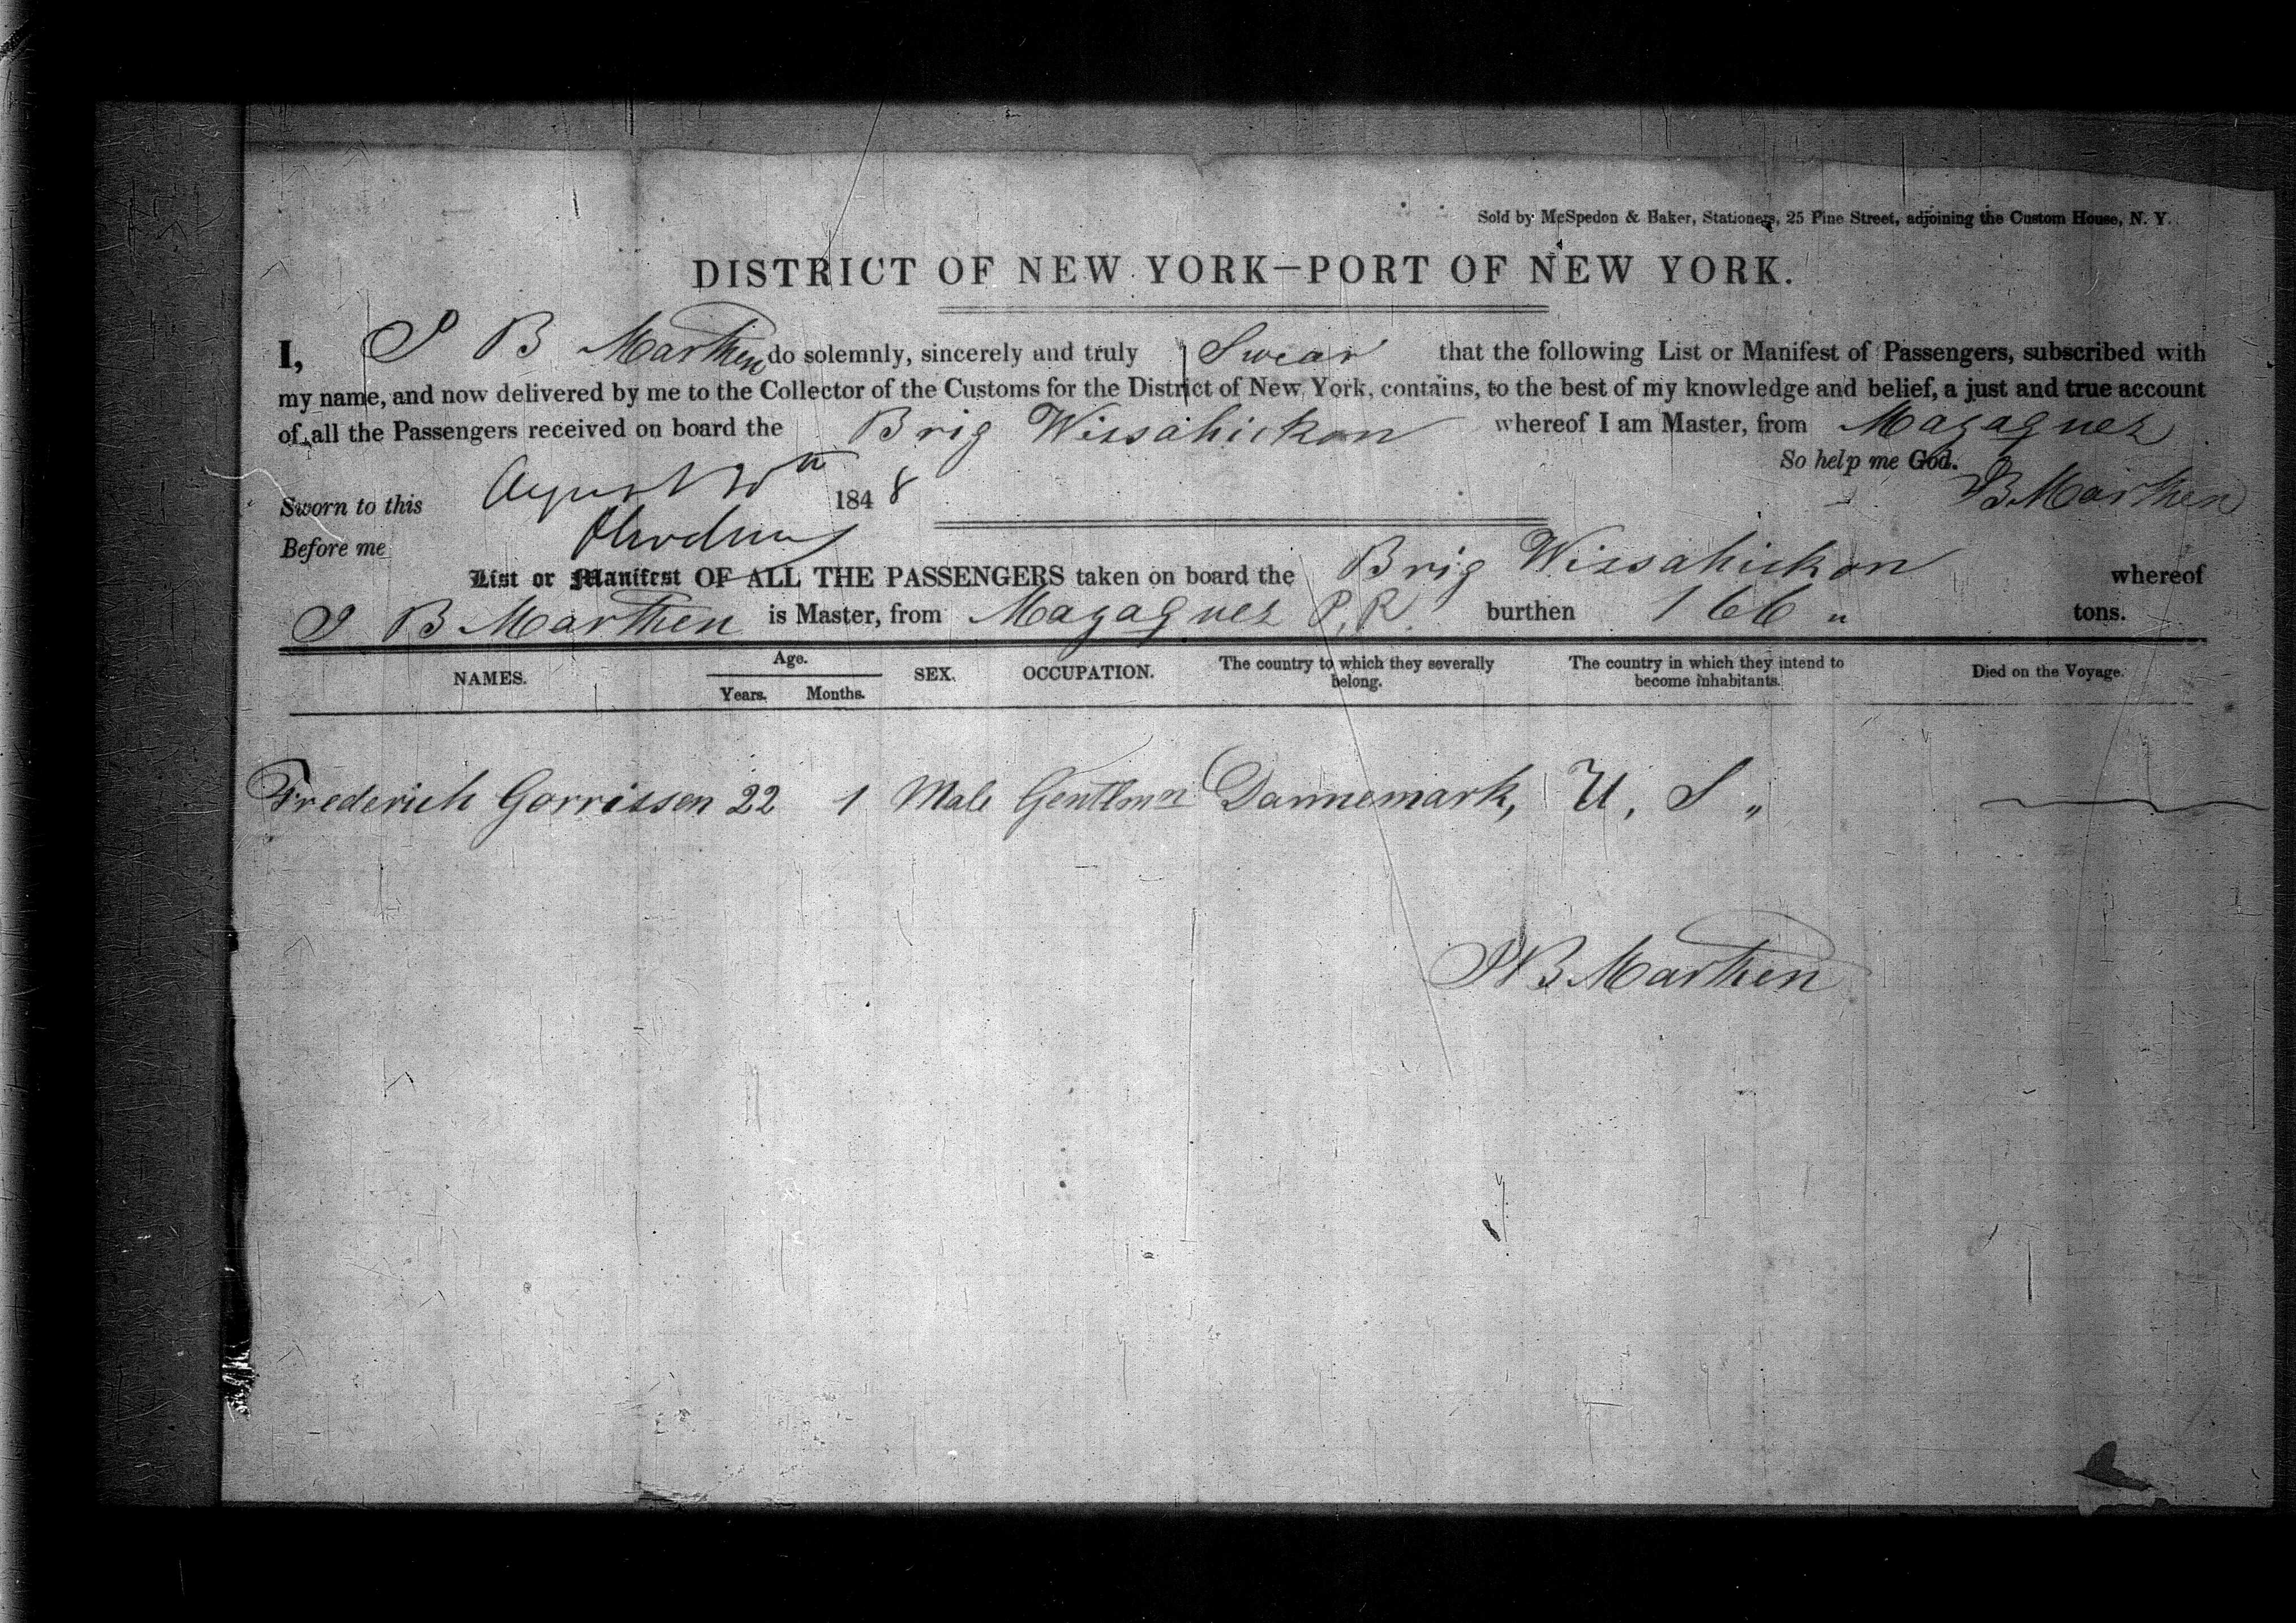 Sold by McSpedon & Baker, Stationers, 25 Pine Street, adjoining the Custom House, N. Y.
DISTRICT OF NEW YORK—PORT OF NEW YORK.
I, J B Marthen do solemnly, sincerely and truly Swear that the following List or Manifest of Passengers, subscribed with
my name, and now delivered by me to the Collector of the Customs for the District of New York, contains, to the best of my knowledge and belief, a just and true account
of all the Passengers received on board the Brig Wissahickon whereof I am Master, from Mayaguez
So help me God.
Sworn to this August 1848
B Marthen
Before me
List or Manifest OF ALL THE PASSENGERS taken on board the Brig Wissahickon whereof
J B Marthen is Master, from Mayaguez P.R. burthen 166 " tons.
NAMES. Age. SEX. OCCUPATION. The country to which they severally belong. The country in which they intend to become inhabitants. Died on the Voyage.
Years. Months.
Frederich Gorrissen 22 1 Male Gentlmn Dannemark, U, S "
J B Marthen